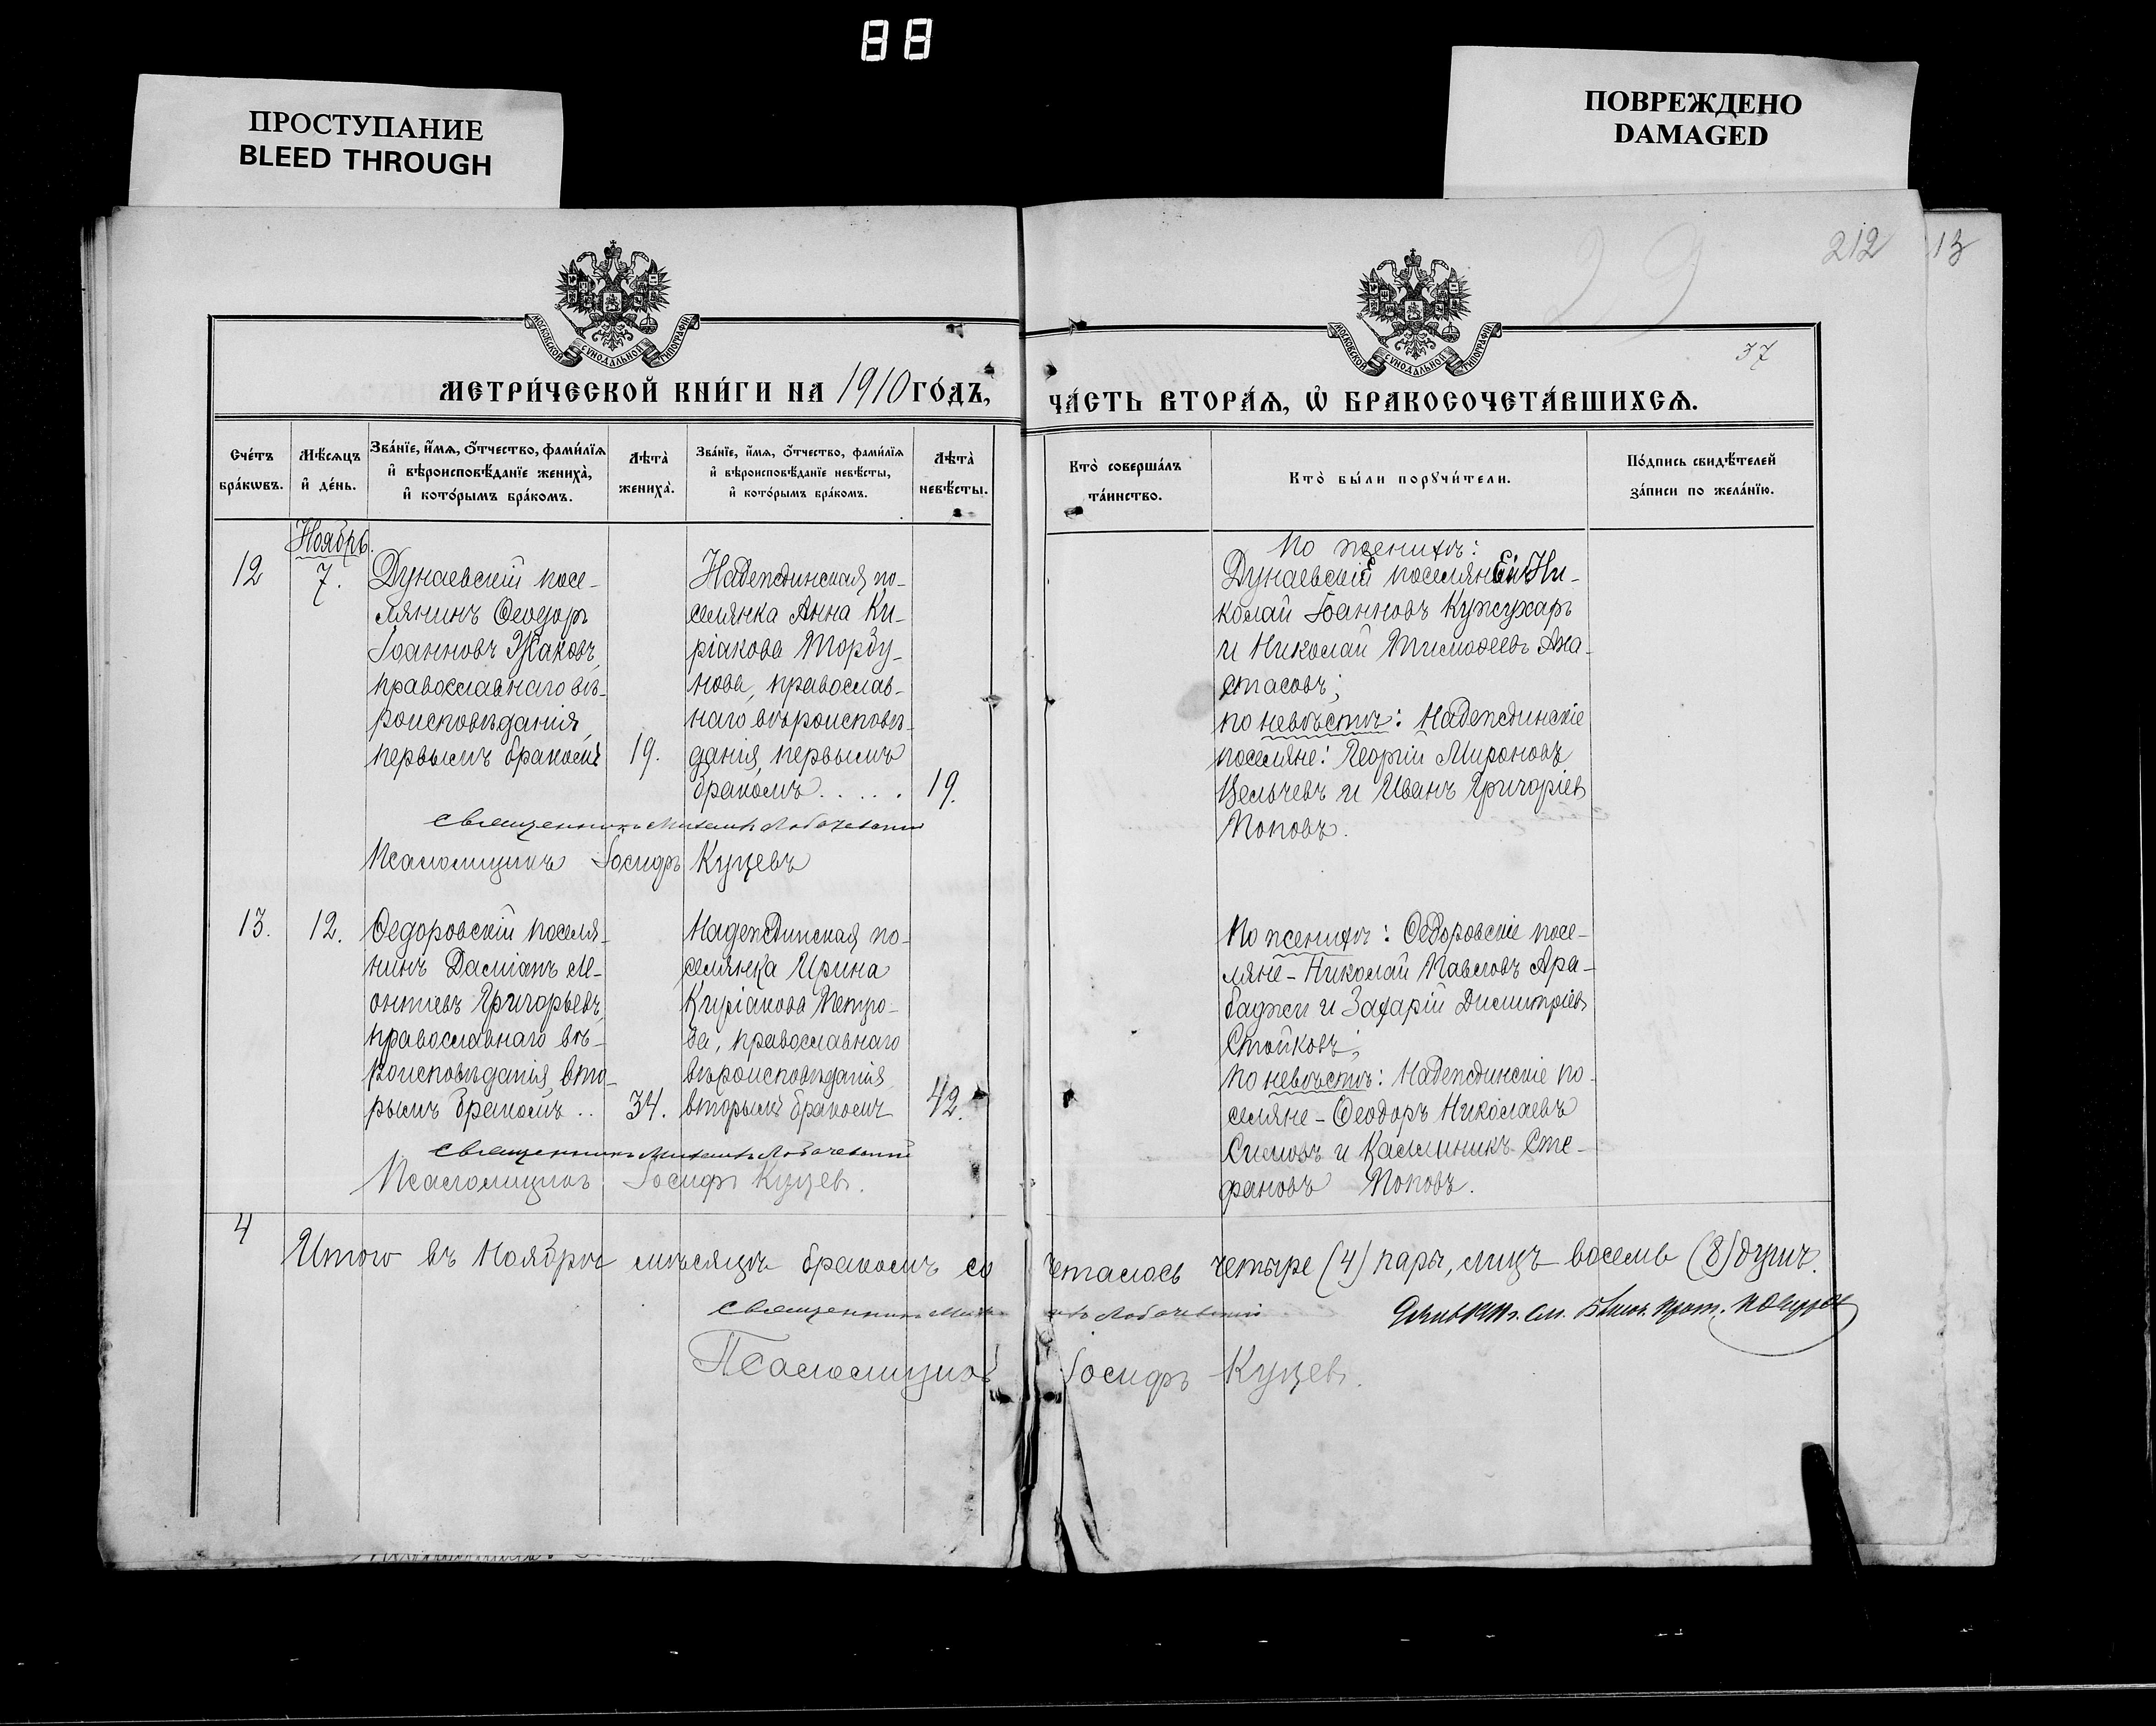 88
ПРОСТУПАНИЕ
BLEED THROUGH
ПОВРЕЖДЕНО
DAMAGED
212
13
29
37
МОСКОВСКОЙ СѴНОДАЛЬНОЙ ТИПОГРАФІИ
МОСКОВСКОЙ СѴНОДАЛЬНОЙ ТИПОГРАФІИ
МЕТРИ́ЧЕСКОЙ КНИ́ГИ НА 1910 ГО́ДЪ,
ЧА́СТЬ ВТОРА́Ѧ, Ѡ БРАКОСОЧЕТА́ВШИХСѦ.
Сче́тъ бра́кѡвъ.
Мѣ́сѧцъ и҆ де́нь.
Зва́нїе, и҆́мѧ, ѻ҆́тчество, фами́лїѧ и҆ вѣроисповѣ́данїе жениха̀, и҆ кото́рымъ бра́комъ.
Лѣ́та̀ жениха̀.
Зва́нїе, и҆́мѧ, ѻ҆́тчество, фами́лїѧ и҆ вѣроисповѣ́данїе невѣ́сты, и҆ кото́рымъ бра́комъ.
Лѣ́та̀ невѣ́сты.
Кто̀ соверша́лъ та́инство.
Кто̀ бы́ли порꙋчи́тели.
По́дпись свидѣ́телей за́писи по жела́нїю.
Ноябрь.
12
7.
Дунаевскій посе-
лянинъ Ѳеодоръ
Іоанновъ Жаковъ,
православнаго вѣ-
роисповѣданія,
первымъ бракомъ
19.
Надеждинская по-
селянка Анна Ки-
ріакова Торбу-
нова, православ-
наго вѣроисповѣ-
данія, первымъ
бракомъ . . . . .
19.
По женихѣ:
Дунаевскіе поселяне Ни-
колай Іоанновъ Кужухарь
и Николай Тимоѳеевъ Ана-
стасовъ;
по невѣстѣ: Надеждинскіе
поселяне: Георгій Мироновъ
Вельчевъ и Иванъ Григоріев
Поповъ.
Священникъ Михаилъ Лобачевскій
Псаломщикъ Іосифъ Куцевъ
13.
12.
Ѳедоровскій поселя-
нинъ Даміанъ Ле-
онтіевъ Григорьевъ,
православнаго вѣ-
роисповѣданія, вто-
рымъ бракомъ ..
34.
Надеждинская по-
селянка Ирина
Киріакова Петро-
ва, православнаго
вѣроисповѣданія,
вторымъ бракомъ
42.
По женихѣ: Ѳедоровскіе посе-
ляне - Николай Павловъ Ара-
баджи и Захарій Димитріев
Стойковъ;
По невѣстѣ: Надеждинскіе по-
селяне - Ѳеодоръ Николаевъ
Симовъ и Каллиникъ Сте-
фановъ Поповъ.
Священникъ Михаилъ Лобачевскій
Псаломщикъ Іосифъ Куцевъ.
4
Итого въ Ноябрѣ мѣсяцѣ бракомъ сочеталось четыре (4) пары, лицъ восемь (8) душъ.
Священникъ Михаилъ Лобачевскій
Псаломщикъ Іосифъ Куцевъ.